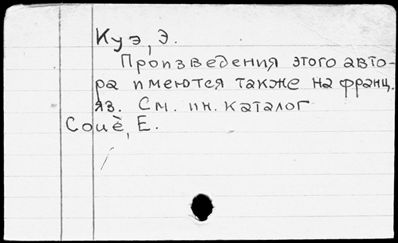 Куэ, Э.
Произведения этого авто-
ра имеются также на франц.
яз. См. ин. каталог
Couè, E.